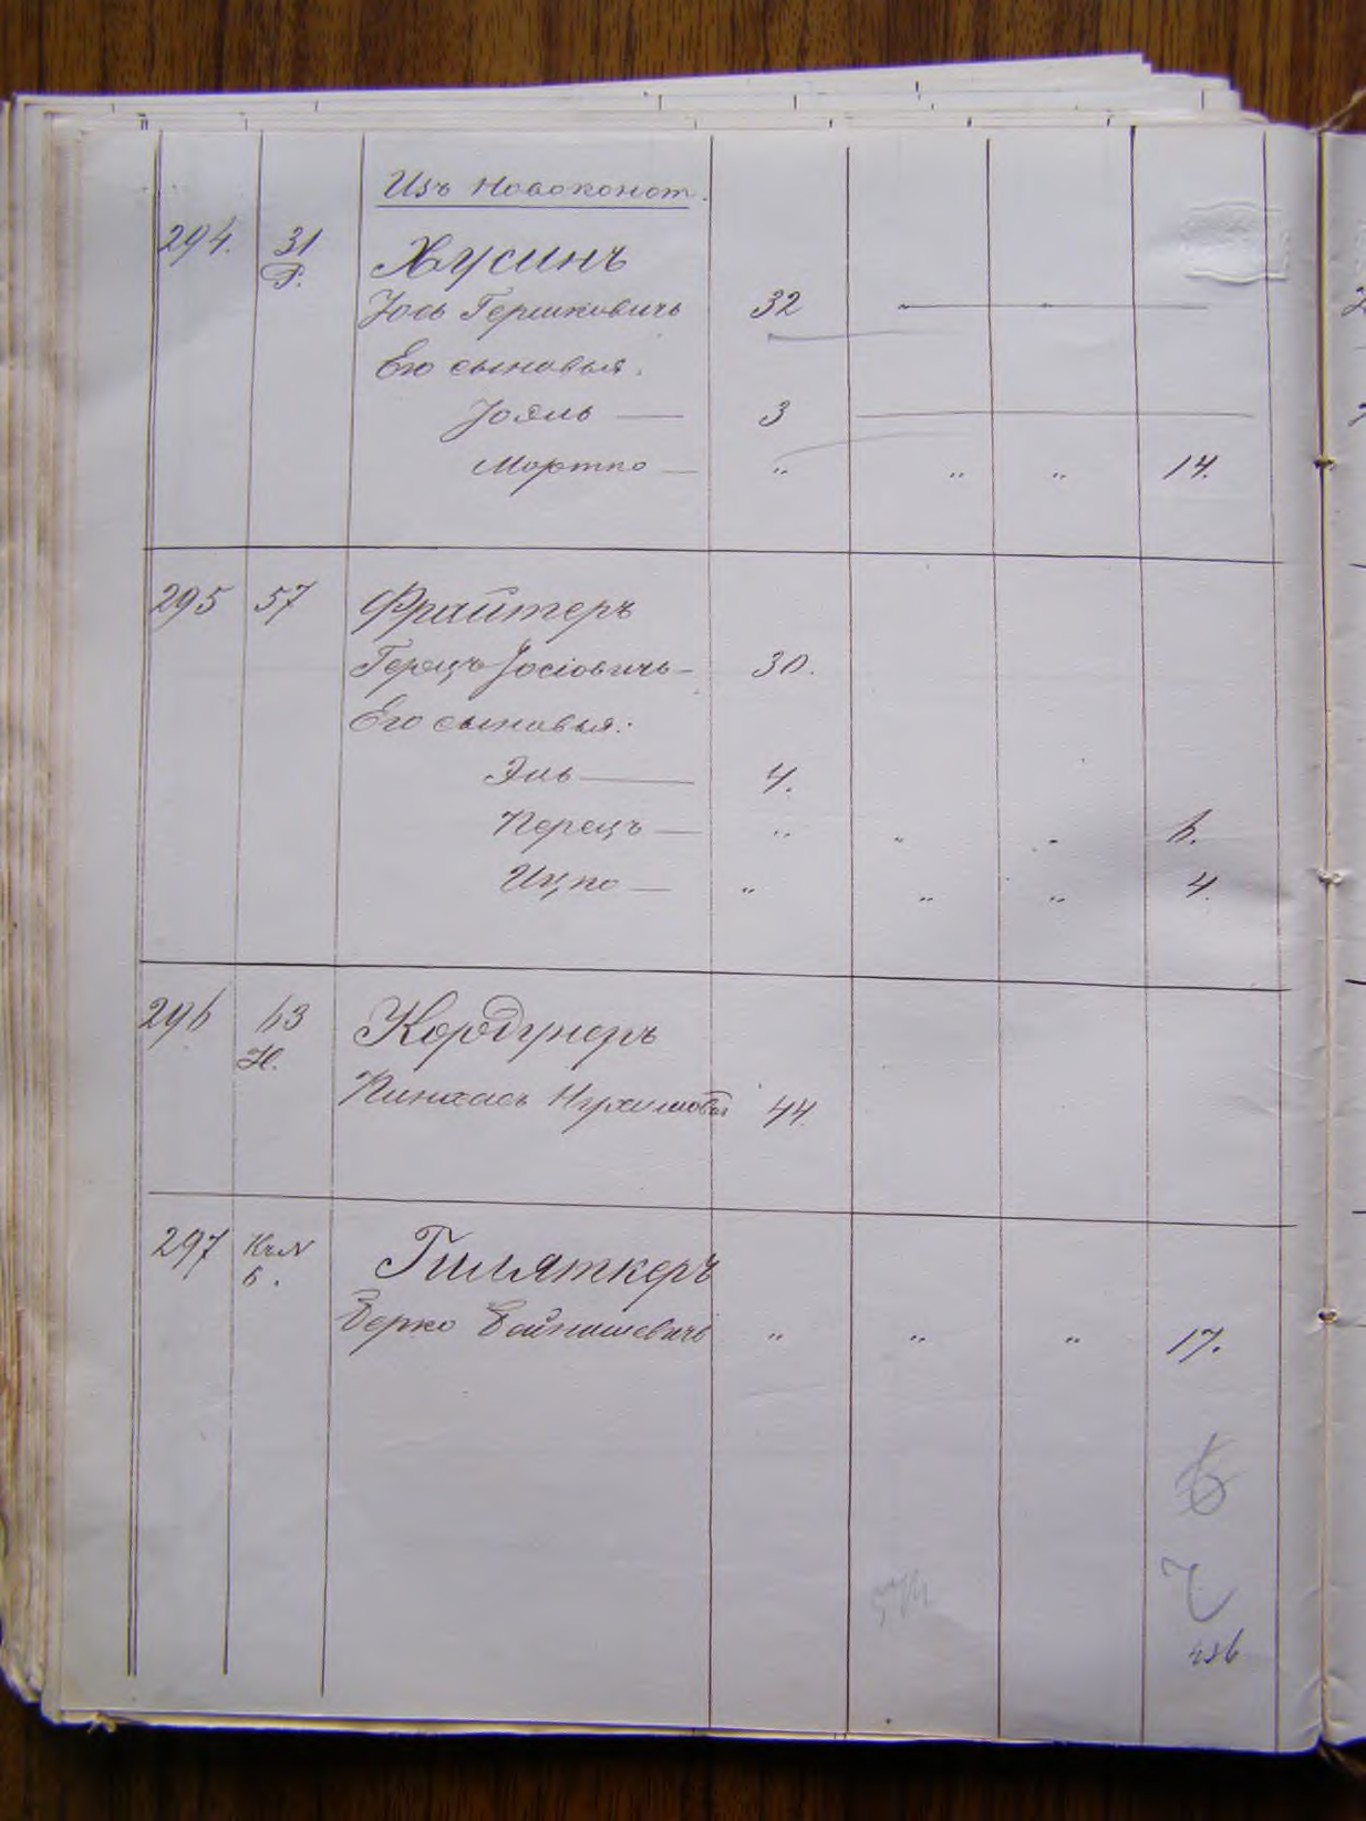 Изъ Новоконст.
294. 31 Хусинъ
Р.
Іось Гершковичъ 32 " "
Его сыновья:
Іоэль — 3
Мортко — " " " 14.
295 57 Фрайтеръ
Герецъ Іосіовичъ — 30.
Его сыновья:
Эль — 4.
Перецъ — " " " 6.
Ицко — " " " 4.
296 63 Кордунеръ
Н.
Пинхасъ Нухимов 44
297 Гиляткеръ
Б.
Берко " " " 17.